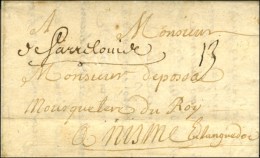 A Monsieur
de Sarrelouis 13
Monsieur deposda
Mousquetere du Roy
a nisme Enlanguedoc